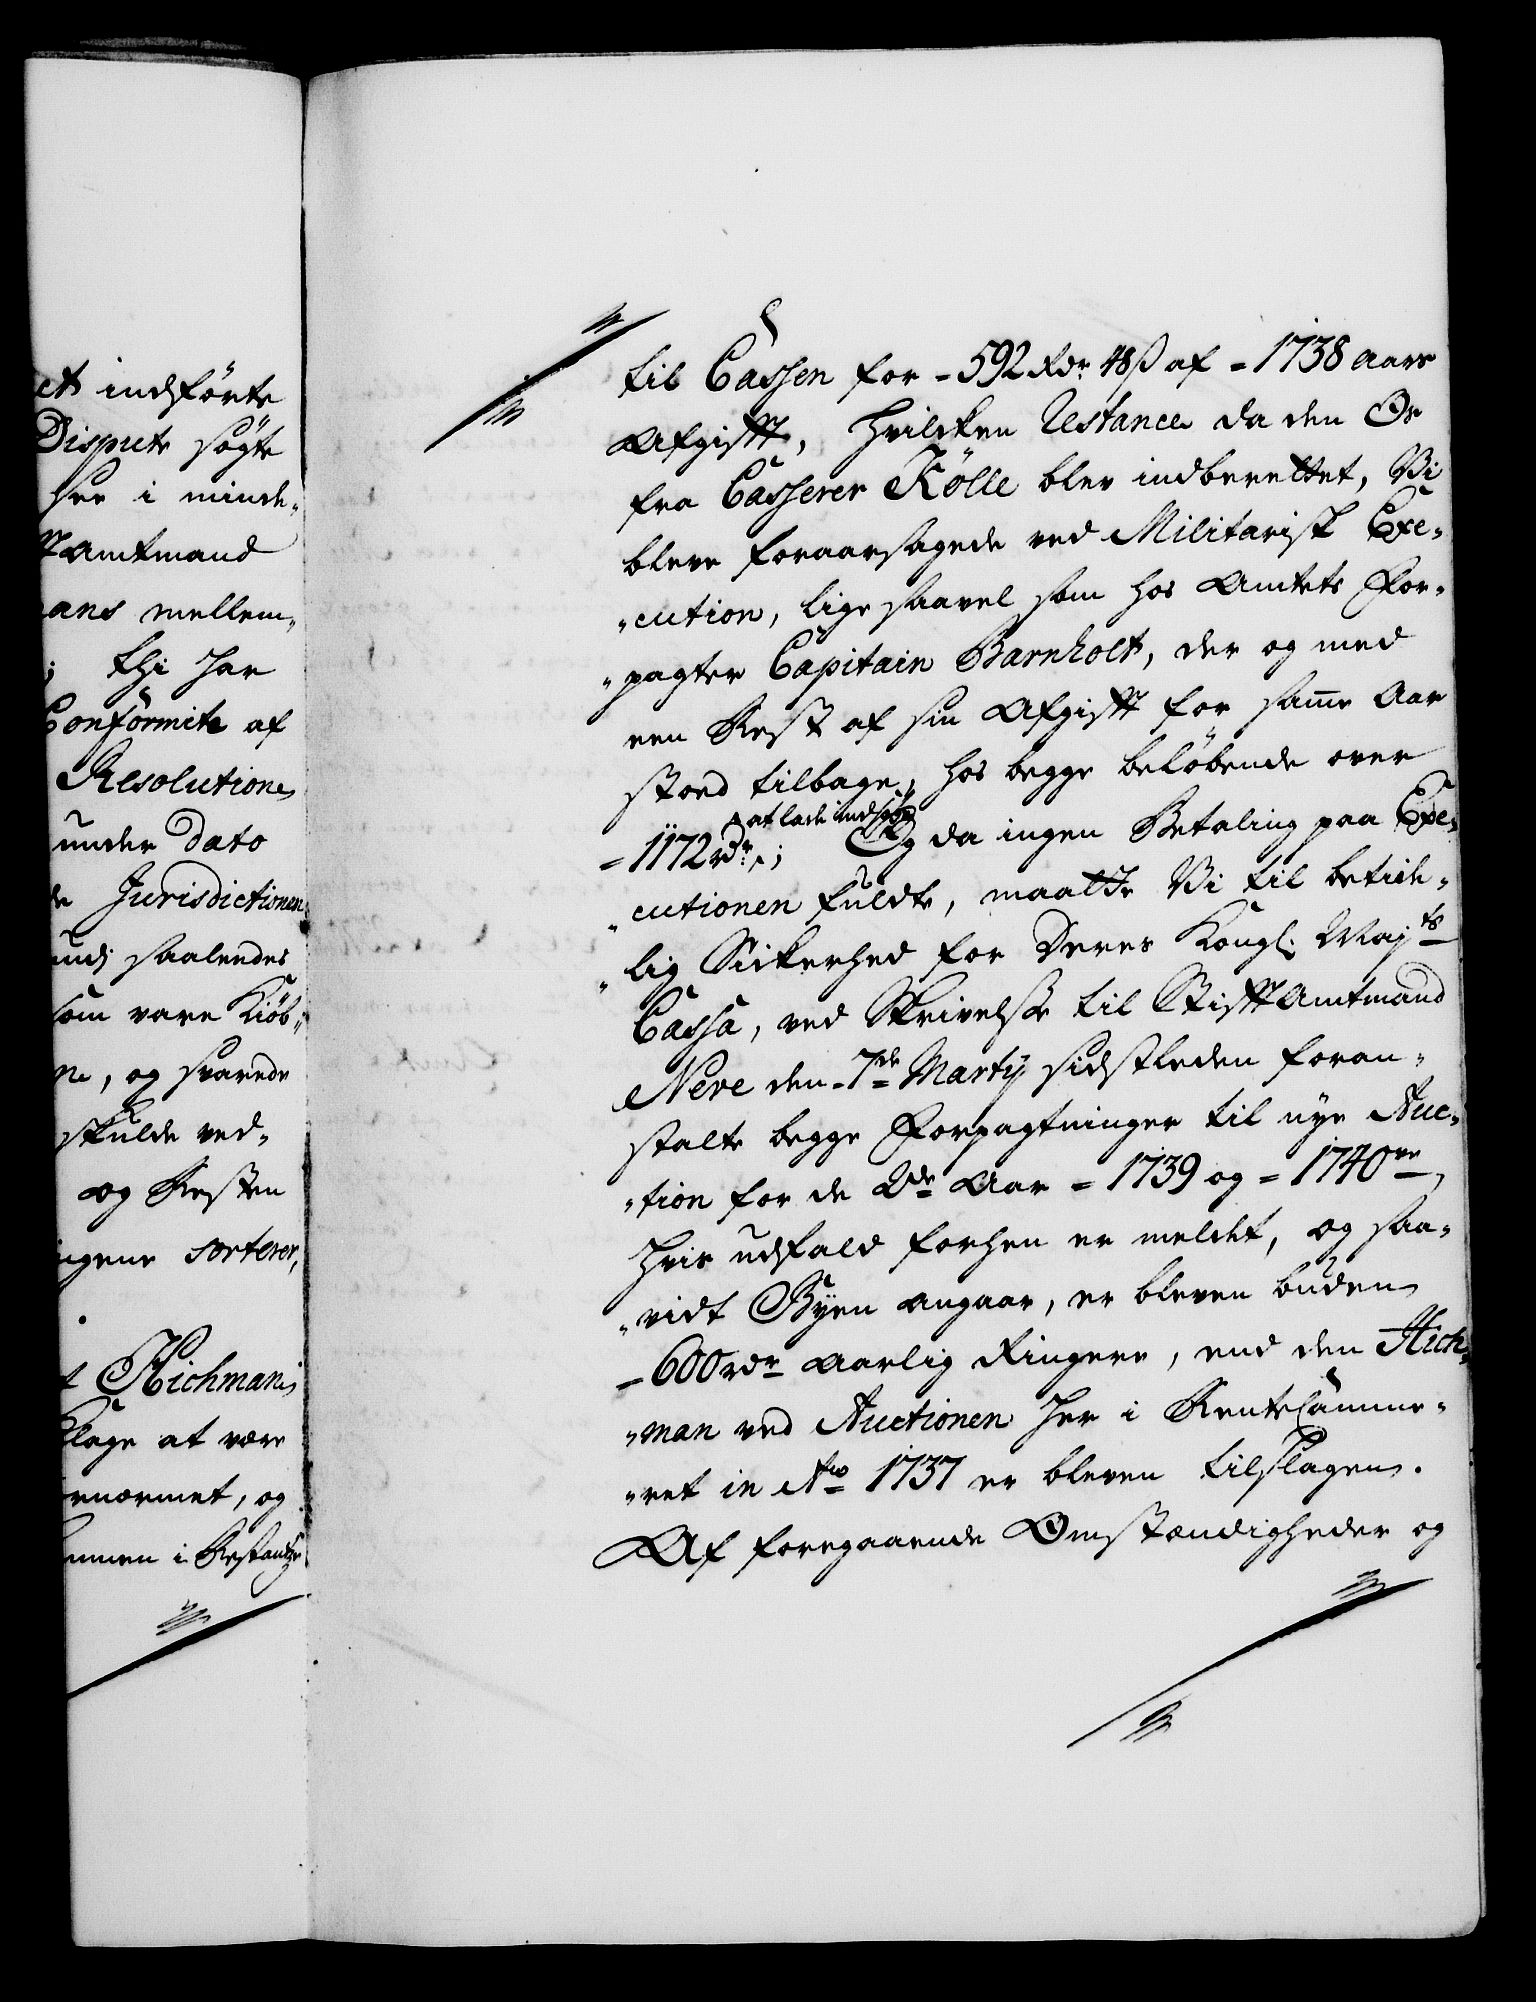 et indførte
Dispute søgte
her i minde-
ftamtmand
ans mellem-
; thi har
Conformite af
Resolution
under Dato
de Jurisdictionen
saaledes
som vare Kiøb-
ne, og svarede
skulde ved-
og Resten
igene sorterer,
t Hichmans
Klage at være
fornærmet, og
kommen i Restantze
til Cassen for = 592 Rdr 48 ß af = 1738 aars
Afgifft, hvilcken Restance da den Os
fra Casserer Kölle blev indberettet, Vi
bleve foraarsagede ved Militarisk Exe-
"cution, lige saavel som hos Amtets For-
"pagter Capitain Barnholt, der og med
een Rest af sin Afgifft for samme Aar
stoed tilbage, hos begge beløbende over
at lade indsøge
= 1172 rdr; Og da ingen Betaling paa Exe-
"cutionen fuldte, maatte Vi til betide-
"lig Sickerhed for Deres Kongl. Majts
Cassa, ved Skrivelse til StifftAmtmand
Neve den 7de Martij sidstleden foran-
stalte begge Forpagtninger til nye Auc-
"tion for de 2de Aar = 1739 og = 1740ve,
hvis udfald forhen er meldet, og saa-
"vidt Byen angaar, er bleven buden
= 600 rdr aarlig Ringere, end den Hich-
"man ved Auctionen her i RenteCamme-
"ret in Ao 1737 er bleven tilslagen.
Af foregaaende Omstændigheder og